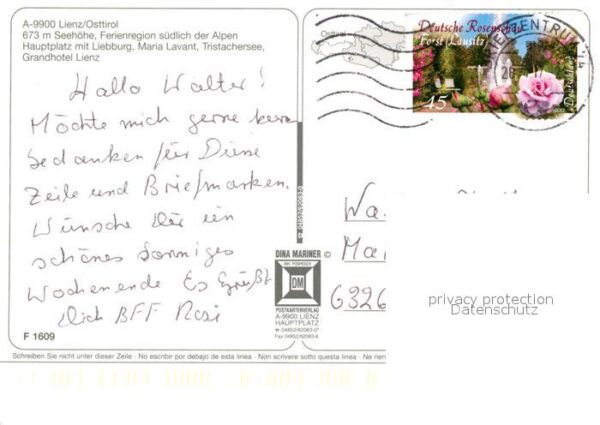 A-9900 Lienz/Osttirol
673 m Seehöhe, Ferienregion südlich der Alpen
Hauptplatz mit Liebburg, Maria Lavant, Tristachersee,
Grandhotel Lienz
Hallo Walter!
Möchte mich gerne
bedanken für Deine
Zeile und Briefmarken.
Wünsche Dir ein
schönes sonniges
Wochenende Es Grüßt
Dich BFF Rosi
F 1609
Osttirol
Deutsche Rosenschau
Forst (Lausitz)
45
Deutschland
ZENTRUM
DINA MARINER ©
DM
POSTKARTENVERLAG
A-9900 LIENZ
HAUPTPLATZ
Wa
Ma
6326
privacy protection
Datenschutz
Schreiben Sie nicht unter dieser Zeile - No escribir por debajo de esta linea - Non scrivere sotto questa linea - Ne